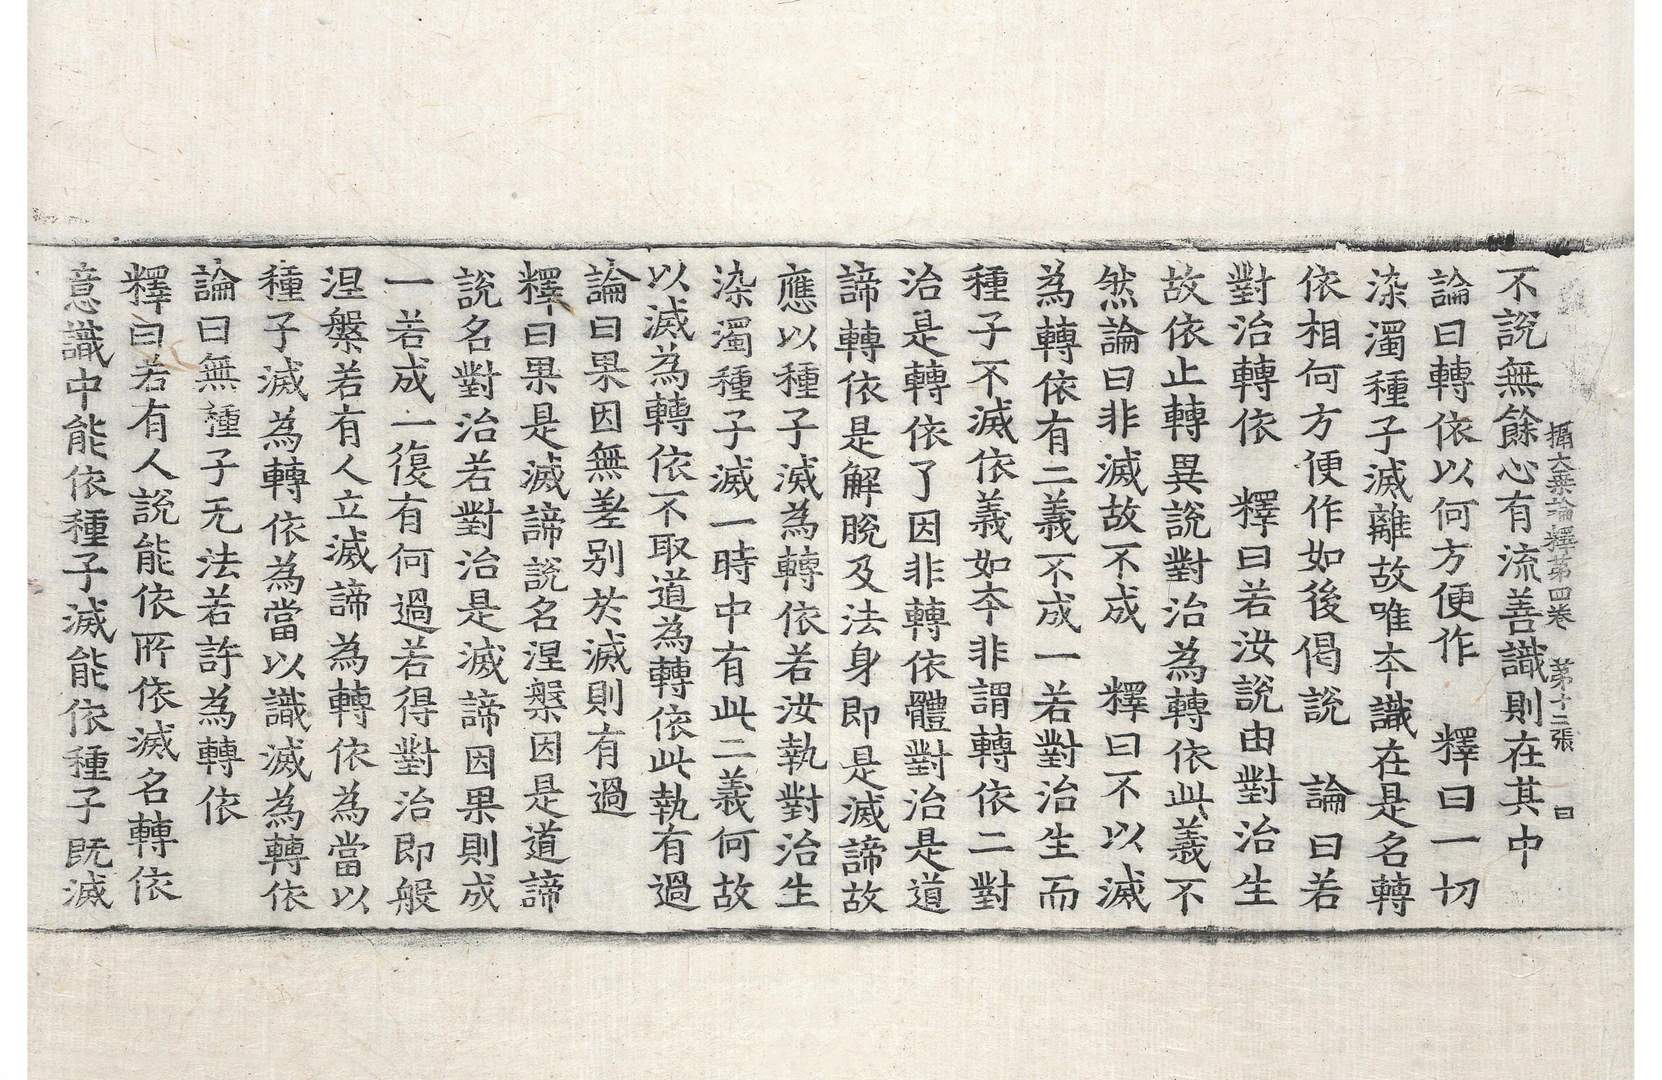 攝大乗論釋第四卷 第十三張 曰
不說無餘心有流善識則在其中
論曰轉依以何方便作 釋曰一切
染濁種子滅離故唯夲識在是名轉
依相何方便作如後偈說 論曰若
對治轉依 釋曰若汝說由對治生
故依止轉異說對治為轉依此義不
然論曰非滅故不成 釋曰不以滅
為轉依有二義不成一若對治生而
種子不滅依義如夲非謂轉依二對
治是轉依了因非轉依體對治是道
諦轉依是解脫及法身即是滅諦故
應以種子滅為轉依若汝執對治生
染濁種子滅一時中有此二義何故
以滅為轉依不取道為轉依此執有過
論曰果因無差别於滅則有過
釋曰果是滅諦說名涅槃因是道諦
說名對治若對治是滅諦因果則成
一若成一復有何過若得對治即般
涅槃若有人立滅諦為轉依為當以
種子滅為轉依為當以識滅為轉依
論曰無種子无法若許為轉依
釋曰若有人說能依所依滅名轉依
意識中能依種子滅能依種子既滅